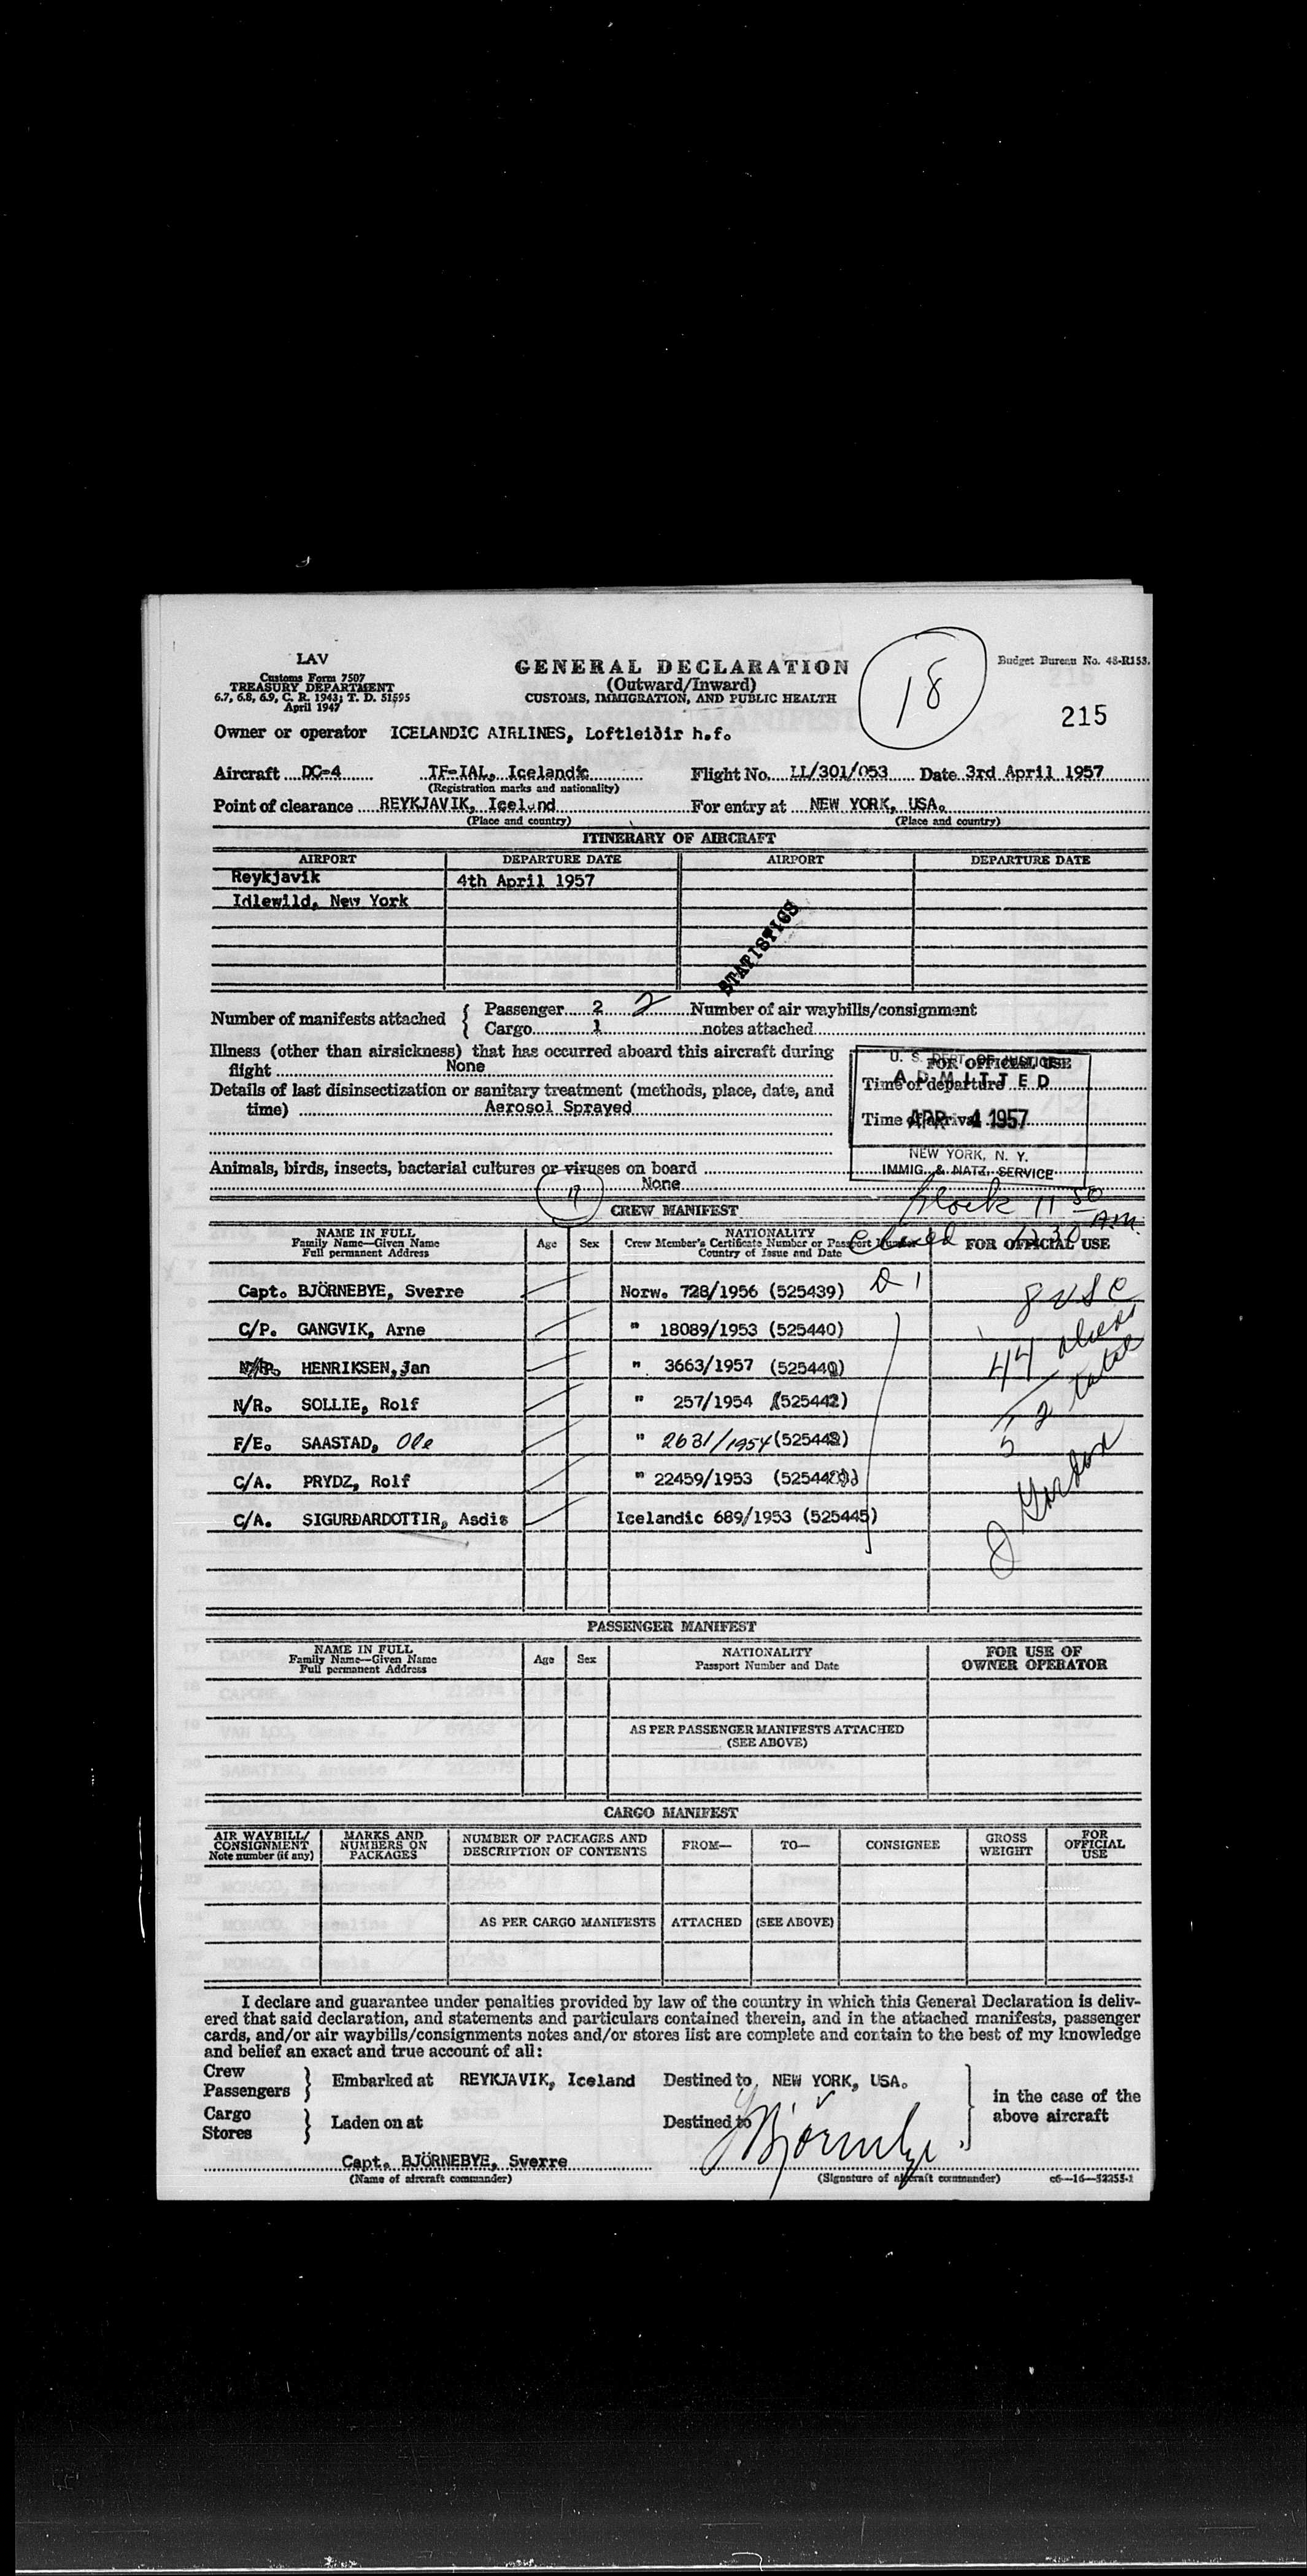 LAV
Customs Form 7507
TREASURY DEPARTMENT
6.7, 6.8, 6.9, C. R. 1943; T. D. 51595
April 1947
GENERAL DECLARATION
(Outward/Inward)
CUSTOMS, IMMIGRATION, AND PUBLIC HEALTH
18
Budget Bureau No. 48-R153.
215
Owner or operator ICELANDIC AIRLINES, Loftleiðir h.f.
Aircraft DC-4 TF-IAL, Icelandic Flight No. LL/301/053 Date 3rd April 1957
(Registration marks and nationality)
Point of clearance REYKJAVIK, Iceland For entry at NEW YORK, USA.
(Place and country) (Place and country)
ITINERARY OF AIRCRAFT
AIRPORT DEPARTURE DATE AIRPORT DEPARTURE DATE
Reykjavik 4th April 1957
Idlewild, New York
STATISTICS
Number of manifests attached { Passenger 2 2 Number of air waybills/consignment
Cargo 1 notes attached
Illness (other than airsickness) that has occurred aboard this aircraft during
flight None
Details of last disinsectization or sanitary treatment (methods, place, date, and
time) Aerosol Sprayed
FOR OFFICIAL USE
Time of departure
Time of arrival
U. S. DEPT. OF JUSTICE
ADMITTED
APR 4 1957
NEW YORK, N. Y.
IMMIG. & NATZ. SERVICE
Animals, birds, insects, bacterial cultures or viruses on board
None
Block 11 50 AM
CREW MANIFEST
NAME IN FULL
Family Name—Given Name
Full permanent Address
Age Sex
NATIONALITY
Crew Member's Certificate Number or Passport Number
Country of Issue and Date
FOR OFFICIAL USE
Capt. BJÖRNEBYE, Sverre Norw. 728/1956 (525439) D 1
C/P. GANGVIK, Arne " 18089/1953 (525440)
HENRIKSEN, Jan " 3663/1957
N/R. SOLLIE, Rolf " 257/1954 (525442)
F/E. SAASTAD, Ole " 2631/1954
C/A. PRYDZ, Rolf " 22459/1953
C/A. SIGURÐARDOTTIR, Asdis Icelandic 689/1953 (525445)
8 USC
44 aliens
52 total
PASSENGER MANIFEST
NAME IN FULL
Family Name—Given Name
Full permanent Address
Age Sex
NATIONALITY
Passport Number and Date
FOR USE OF
OWNER OPERATOR
AS PER PASSENGER MANIFESTS ATTACHED
(SEE ABOVE)
CARGO MANIFEST
AIR WAYBILL/
CONSIGNMENT
Note number (if any)
MARKS AND
NUMBERS ON
PACKAGES
NUMBER OF PACKAGES AND
DESCRIPTION OF CONTENTS
FROM— TO— CONSIGNEE
GROSS
WEIGHT
FOR
OFFICIAL
USE
AS PER CARGO MANIFESTS ATTACHED (SEE ABOVE)
I declare and guarantee under penalties provided by law of the country in which this General Declaration is deliv-
ered that said declaration, and statements and particulars contained therein, and in the attached manifests, passenger
cards, and/or air waybills/consignments notes and/or stores list are complete and contain to the best of my knowledge
and belief an exact and true account of all:
Crew
Passengers } Embarked at REYKJAVIK, Iceland Destined to NEW YORK, USA.
Cargo
Stores } Laden on at Destined to
in the case of the
above aircraft
Capt. BJÖRNEBYE, Sverre Björnebye
(Name of aircraft commander) (Signature of aircraft commander) c6—16—52255-1